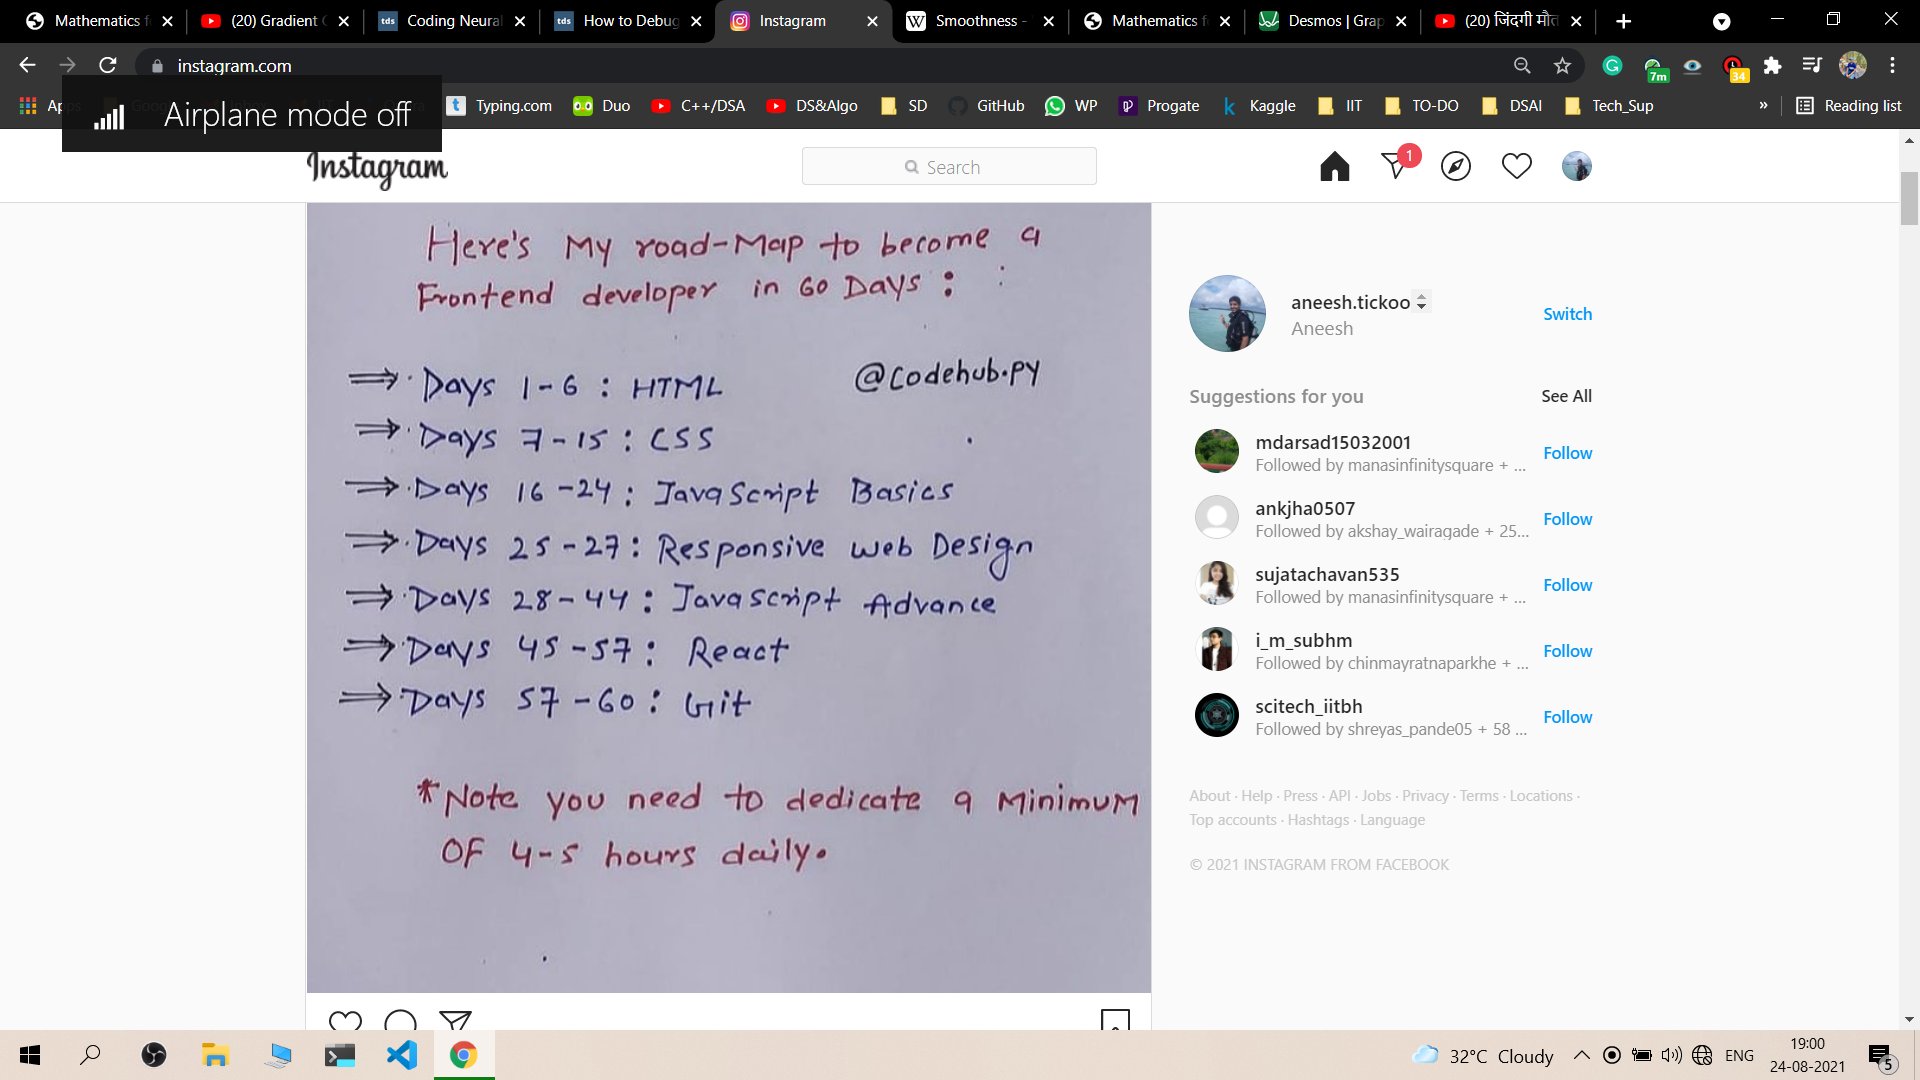 Mathematics f
(20) Gradient
Coding Neural
How to Debug
Instagram
Smoothness -
Mathematics f
Desmos | Grap
(20) जिंदगी मौत
instagram.com
7m
34
Airplane mode off
Typing.com
Duo
C++/DSA
DS&Algo
SD
GitHub
WP
Progate
Kaggle
IIT
TO-DO
DSAI
Tech_Sup
»
Reading list
Instagram
Search
1
Here's My road-Map to become a
Frontend developer in 60 Days :
@codehub.py
⇒ Days 1-6 : HTML
⇒ Days 7-15 : CSS
⇒ Days 16-24 : JavaScript Basics
⇒ Days 25-27 : Responsive Web Design
⇒ Days 28-44 : Javascript Advance
⇒ Days 45-57 : React
⇒ Days 57-60 : Git
*Note you need to dedicate a Minimum
OF 4-5 hours daily.
aneesh.tickoo
Aneesh
Switch
Suggestions for you
See All
mdarsad15032001
Followed by manasinfinitysquare + ...
Follow
ankjha0507
Followed by akshay_wairagade + 25...
Follow
sujatachavan535
Followed by manasinfinitysquare + ...
Follow
i_m_subhm
Followed by chinmayratnaparkhe + ...
Follow
scitech_iitbh
Followed by shreyas_pande05 + 58 ...
Follow
About · Help · Press · API · Jobs · Privacy · Terms · Locations ·
Top accounts · Hashtags · Language
© 2021 INSTAGRAM FROM FACEBOOK
32°C Cloudy
ENG
19:00
24-08-2021
5